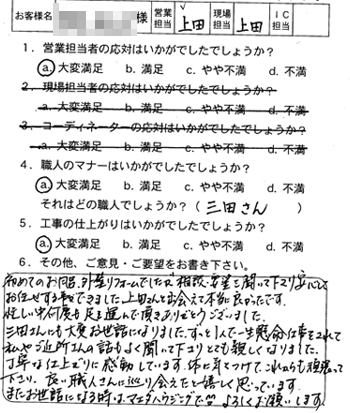 お客様名 様 営業担当 上田 現場担当 上田 IC担当
1．営業担当者の応対はいかがでしたでしょうか？
a. 大変満足 b. 満足 c. やや不満 d. 不満
2．現場担当者の応対はいかがでしたでしょうか？
a. 大変満足 b. 満足 c. やや不満 d. 不満
3．コーディネーターの応対はいかがでしたでしょうか？
a. 大変満足 b. 満足 c. やや不満 d. 不満
4．職人のマナーはいかがでしたでしょうか？
a. 大変満足 b. 満足 c. やや不満 d. 不満
それはどの職人でしょうか？（ 三田さん ）
5．工事の仕上がりはいかがでしたでしょうか？
a. 大変満足 b. 満足 c. やや不満 d. 不満
6．その他、ご意見・ご要望をお書き下さい。
初めてのお家 外壁リフォームでしたが 相談、要望を聞いて下さり安心して
お任せする事ができました。上田さんと出会えて本当に良かったです。
忙しい中何度も足を運んで頂きありがとうございました。
三田さんにも大変お世話になりました。ずっと1人で一生懸命仕事をされて
私やご近所さんの話もよく聞いて下さりとても親しくなりました。
丁寧な仕上がりに感動しています。体に気をつけて、これからも頑張って
下さい。良い職人さんに巡り会えたと嬉しく思っています。
またお世話になる時はマエダハウジングで よろしくお願いします。